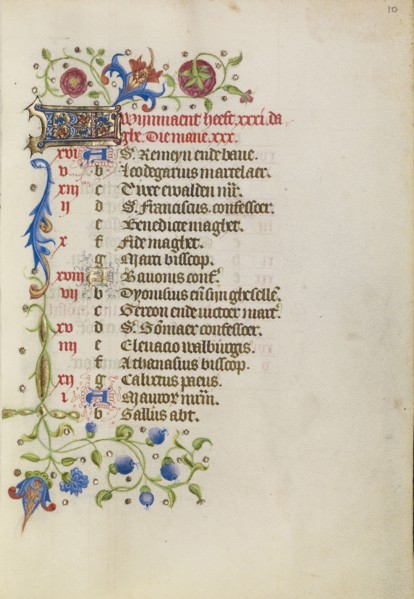 10
Wijnmaent heeft .xxxi. da
ghe. Die mane .xxx.
xvi A S. Remeyn ende baue.
v b Leodegarius martelaer.
xiii c Twee ewalden
ii d S. Franciscus confessoer.
e Benedicte maghet.
x f Fide maghet.
g Marc bisscop.
xviii A Bauonis conf.
vii b Dyonisius en sijn ghesellen.
c Gereon ende victoer mart.
xv d S. Gomaer confessoer.
iiii e walburgis.
f Athanasius bisscop.
xii g Calixtus paeus.
i A
b Gallus abt.